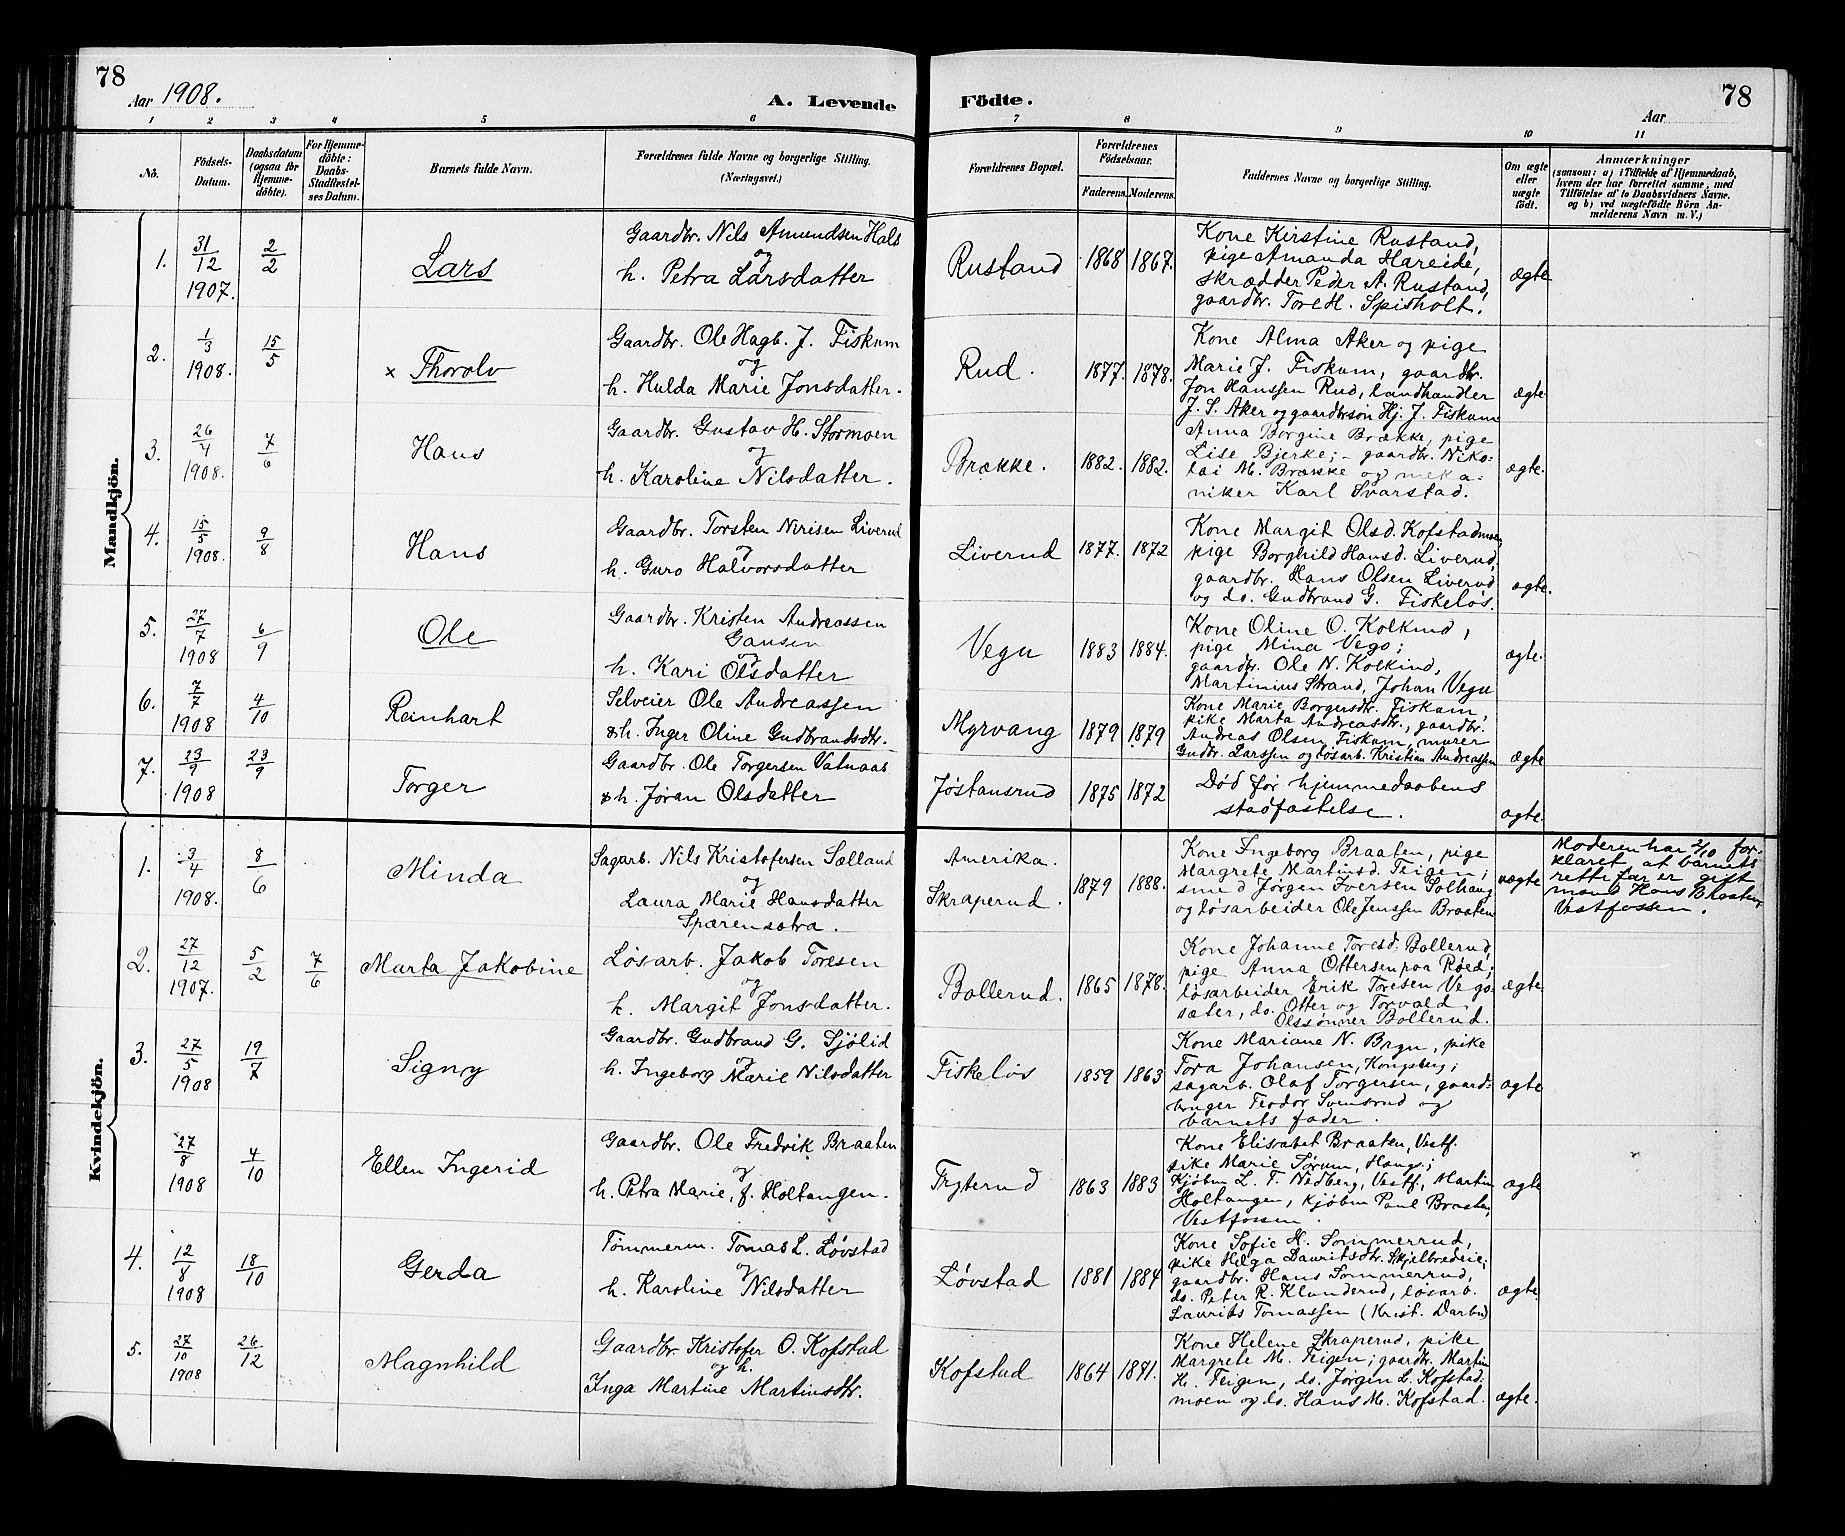 78
Aar 1908.
A. Levende Födte.
78
Aar
1 2 3 4 5 6 7 8 9 10 11
No.
Födsels-Datum.
Daabsdatum (ogsaa for Hjemmedöbte).
For Hjemmedöbte: Daabs-Stadfæstelses Datum.
Barnets fulde Navn.
Forældrenes fulde Navne og borgerlige Stilling. (Næringsvei.)
Forældrenes Bopæl.
Forældrenes Födselsaar.
Faderens. Moderens.
Faddernes Navne og borgerlige Stilling.
Om ægte eller uægte født.
Anmærkninger
(saasom: a) i Tilfælde af Hjemmedaab, hvem der har forrettet samme, med Tilföielse af to Daabsvidners Navne, og b) ved uægtefödte Börn Anmelderens Navn m. V.)
Mandkjön.
1. 31/12 1907. 2/2 Lars
Gaardbr. Nils Amundsen Hals
og
h. Petra Larsdatter
Rustand 1868 1867.
Kone Kirstine Rustand,
pige Amanda Hareide,
skrædder Peder A. Rustand,
gaardbr. Tore H. Spisholt.
ægte
2. 1/3 1908. 15/5 x Thorolv
Gaardbr. Ole Hagb. J. Fiskum
og
h. Hulda Marie Jonsdatter.
Rud. 1877. 1878.
Kone Alma Aker og pige
Marie J. Fiskum, gaardbr.
Jon Hanssen Rud, landhandler
J. S. Aker og gaardbrsøn Hj. J. Fiskum
ægte
3. 26/4 1908. 7/6 Hans
Gaardbr. Gustav H. Stormoen
og
h. Karoline Nilsdatter.
Brække. 1882. 1882.
Anna Borgine Brække, pige
Lise Bjerke; - gaardbr. Niko-
lai M. Brække og meka-
niker Karl Svarstad.
ægte.
4. 15/5 1908. 9/8 Hans
Gaardbr. Torsten Nirisen Liverud
og
h. Guro Halvorsdatter
Liverud 1877. 1872
Kone Margit Olsd. Kofstadmoen,
pige Borghild Hansd. Liverud,
gaardbr. Hans Olsen Liverud
og do. Gudbrand G. Fiskeløs.
ægte.
5. 27/7 1908 6/9 Ole
Gaardbr. Kristen Andreassen
Gansen
og
h. Kari Olsdatter
Vegu 1883 1884.
Kone Oline O. Kolkind,
pige Mina Vego;
gaardbr. Ole N. Kolkind,
Martinius Strand, Johan Vegu
ægte.
6. 7/7 1908 4/10 Reinhart
Selveier Ole Andreassen
& h. Inger Oline Gudbrandsdtr.
Myrvang 1879 1879
Kone Marie Borgersdtr. Fiskum,
pike Marta Andreasdtr., gaardbr.
Andreas Olsen Fiskum, murer
Gudbr. Larssen og løsarb. Kristian Andreassen
ægte
7. 23/9 1908 23/9 Torger
Gaardbr. Ole Torgersen Valnaas
& h. Jøran Olsdatter
Jøstansrud 1875 1872
Død før hjemmedaabens
stadfæstelse.
ægte.
Kvindekjön.
1. 3/4 1908. 8/6 Minda
Sagarb. Nils Kristofersen Sælland
og
Laura Marie Hansdatter
Spærensætra.
Amerika.
Skraperud. 1879 1888.
Kone Ingeborg Braaten, pige
Margrete Martinsd. Teigen;
smed Jørgen Iversen Solhaug
og løsarbeider Ole Jenssen Braaten
uægte
Moderen har 2/10 for-
klaret, at barnets
rette far er gift
mand Hans Braaten,
Vestfossen.
2. 27/12 1907. 5/2 7/6 Marta Jakobine
Løsarb. Jakob Toresen
og
h. Margit Jonsdatter.
Bollerud. 1865 1878.
Kone Johanne Toresd. Bollerud,
pige Anna Ottersen paa Røed;
løsarbeider Erik Toresen Vego-
sæter, do. Otter og Torvald
Olssønner Bollerud.
ægte
3. 27/5 1908 19/7 Signy
Gaardbr. Gudbrand G. Sjölid
og
h. Ingeborg Marie Nilsdatter
Fiskeløs 1859 1863
Kone Mariane N. Bryn, pike
Tora Johansen, Kongsberg;
sagarb. Olaf Torgersen, gaard-
bruger Teodor Svensrud og
barnets fader.
ægte
27/8 1908 4/10 Ellen Ingerid
Gaardbr. Ole Fredrik Braaten
og
h. Petra Marie, f. Holtangen.
Fryterud 1863 1883
Kone Elisabet Braaten, Vestf.
pike Marie Sørum, Haugs.;
Kjøbm L. T. Nedberg, Vestf, Martin
Holtangen, kjøbm Paul Braaten,
Vestfossen.
ægte
4. 12/8 1908 18/10 Gerda
Tömmerm. Tomas L. Løvstad
og
h. Karoline Nilsdatter
Løvstad 1881 1884
Kone Sofie H. Sommerrud,
pike Helga Lauritsdtr. Skjelbredeie;
gaardbr. Hans Sommerrud,
do. Peter R. Klunderud, løsarb.
Laurits Tomassen (Krist. Darbu)
ægte.
5. 27/10 1908 26/12 Magnhild
Gaardbr. Kristofer O. Kofstad
og h.
Inga Martine Martinsdtr.
Kofstad 1864 1871.
Kone Helene Skraperud, pike
Margrete M. Teigen; gaardbr. Martin
H. Teigen, do. Jørgen L. Kofstad-
moen og do. Hans M. Kofstad.
ægte.